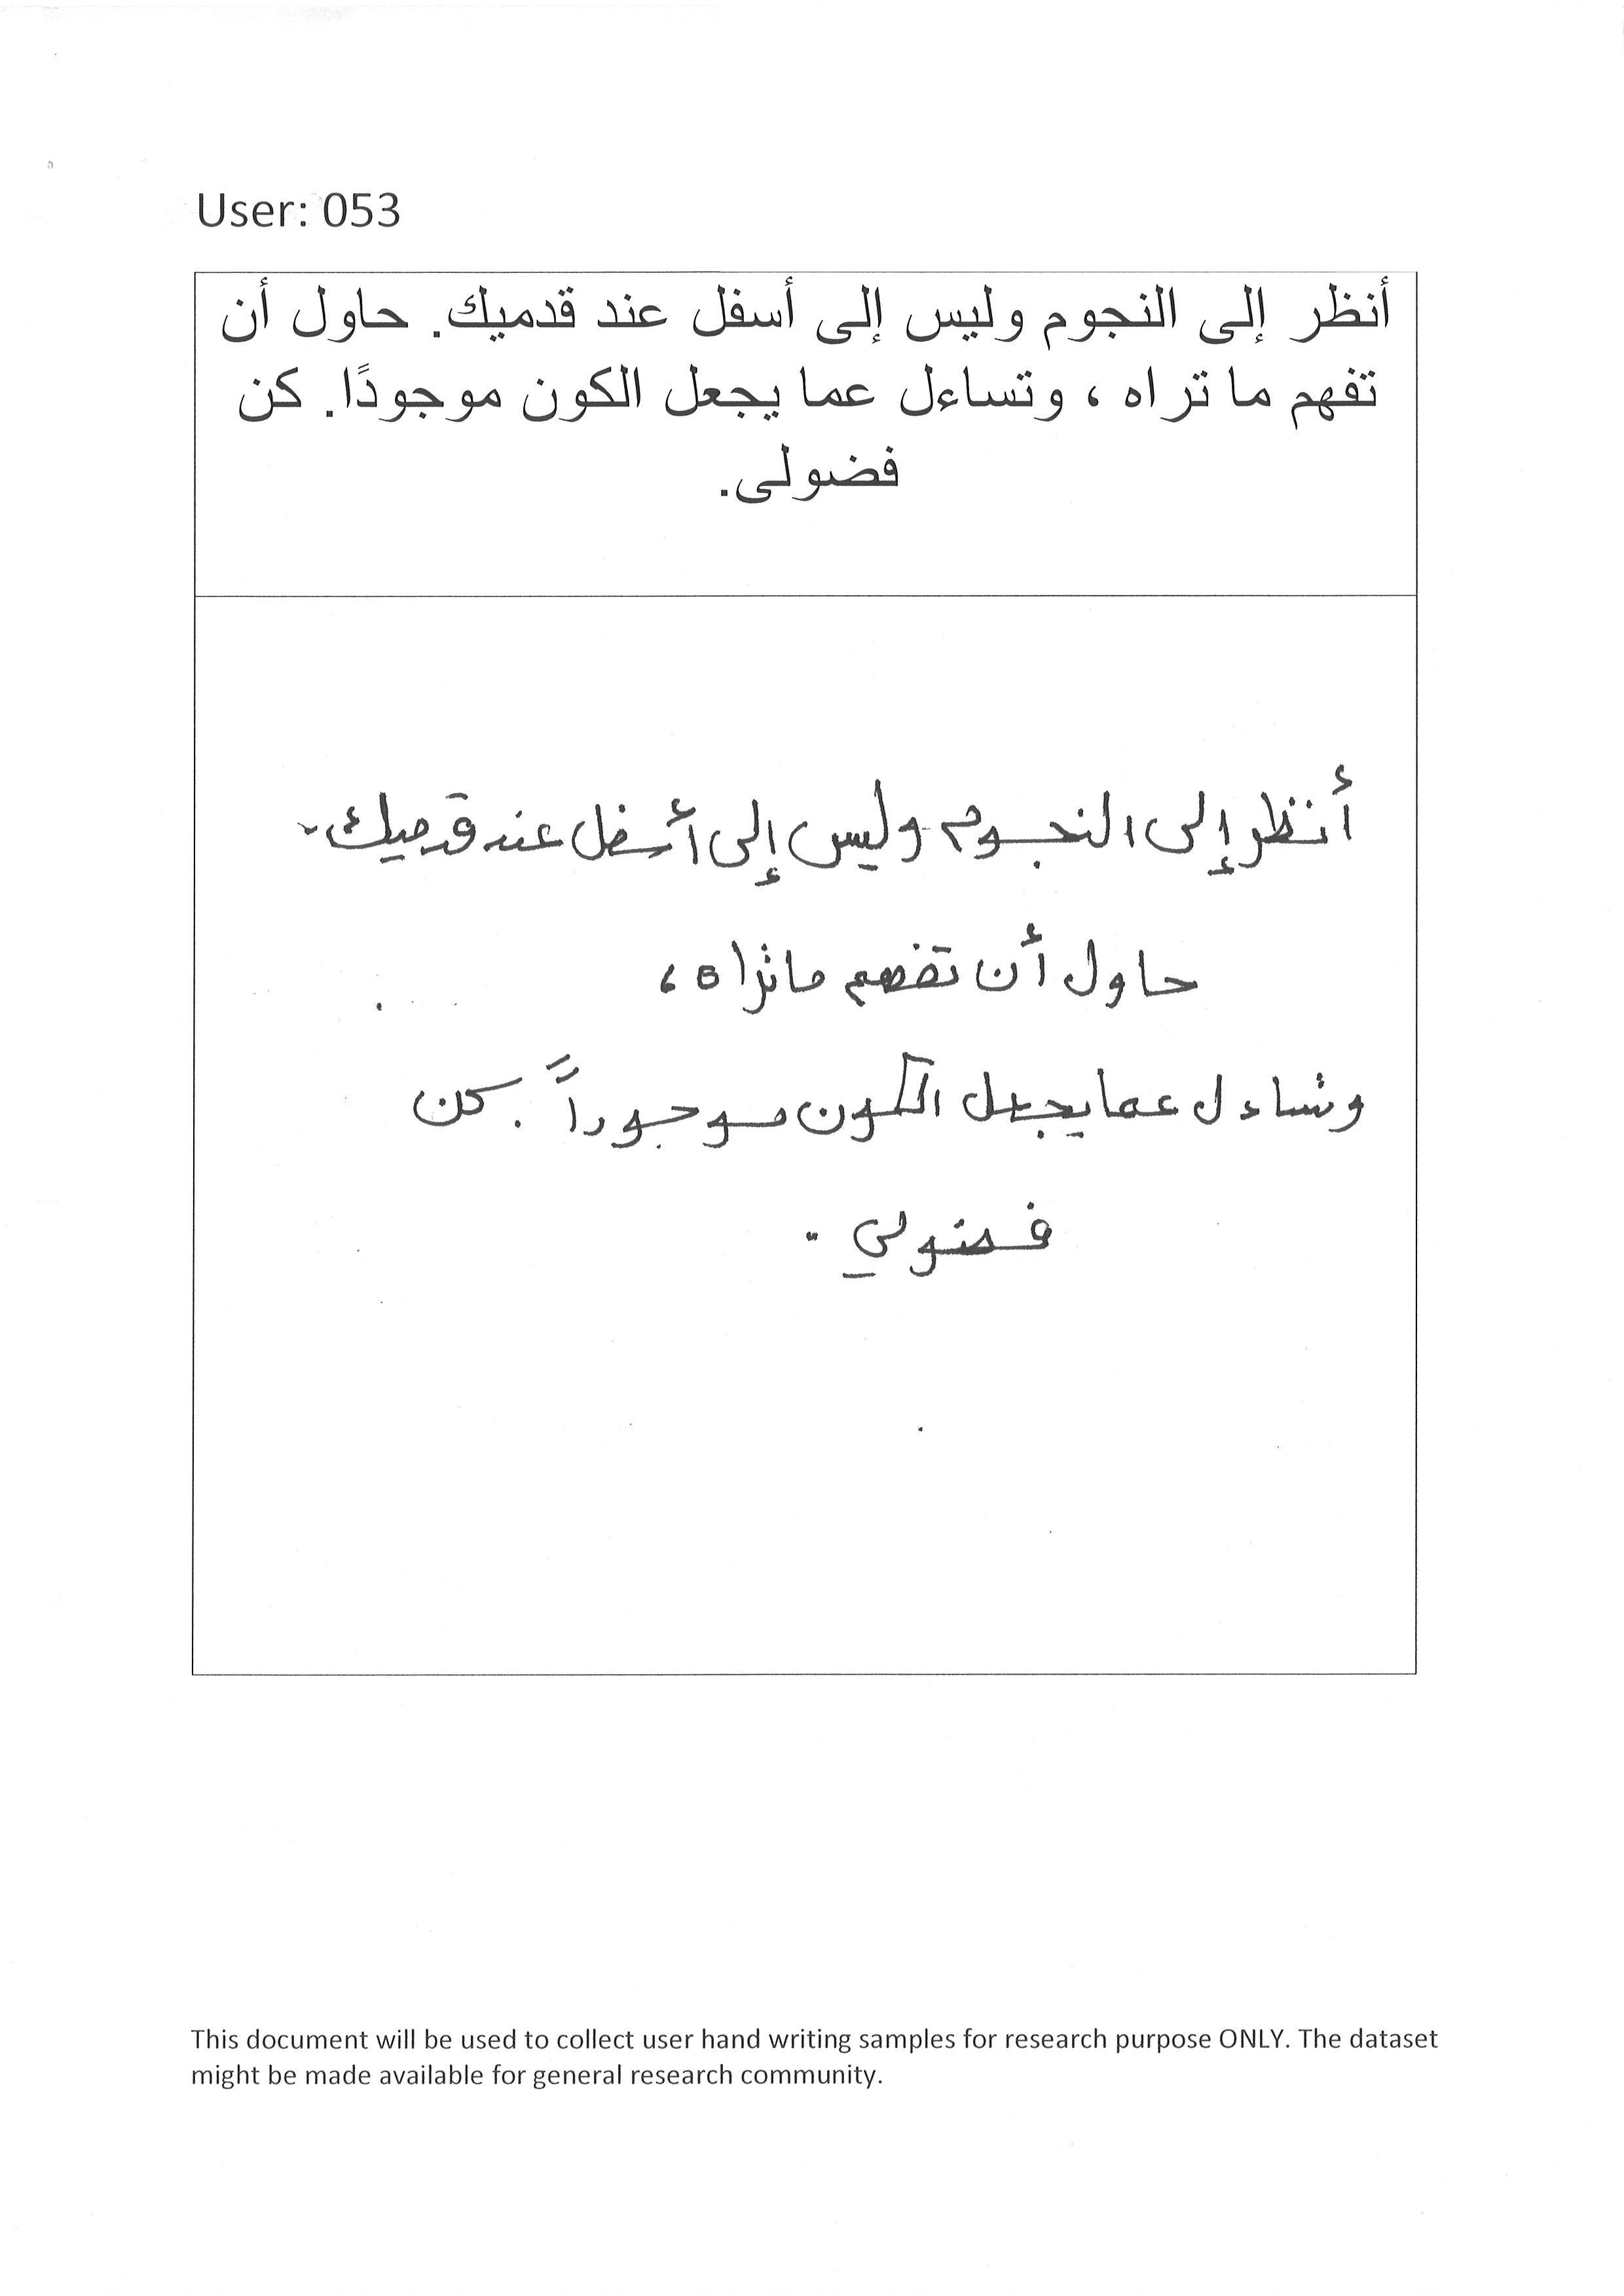 User: 053
أنظر إلى النجوم وليس إلى أسفل عند قدميك. حاول أن
تفهم ما تراه ، وتساءل عما يجعل الكون موجودًا. كن
فضولى.
أنظر إلى النجوم وليس إلى أسفل عند قدميك.
حاول أن تفهم ما تراه ،
وتساءل عما يجعل الكون موجوداً. كن
فضولي .
This document will be used to collect user hand writing samples for research purpose ONLY. The dataset
might be made available for general research community.